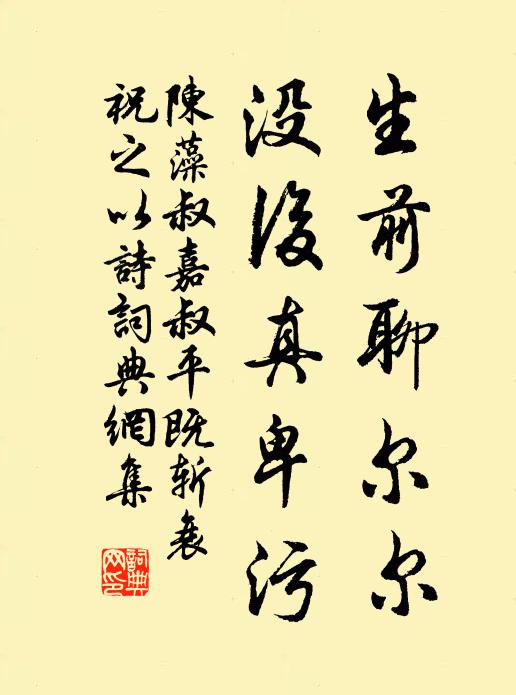 生前聊尔尔
没後真卑污
陳藻叔嘉叔平既斩衰
祝之以詩詞典網集
詞典
网印